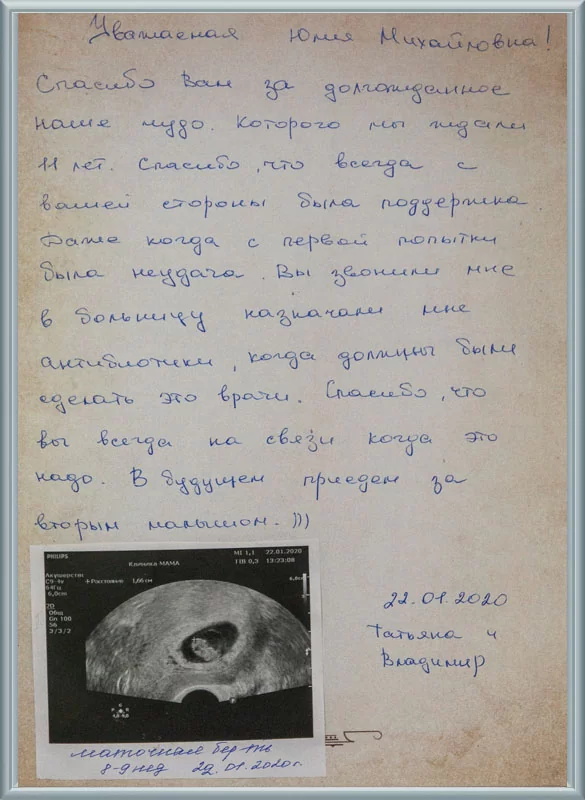 Уважаемая Юлия Михайловна!
Спасибо Вам за долгожданное
наше чудо. Которого мы ждали
11 лет. Спасибо, что всегда с
вашей стороны была поддержка.
Даже когда с первой попытки
была неудача. Вы звонили мне
в больницу назначали мне
антибиотики, когда должны были
сделать это врачи. Спасибо, что
вы всегда на связи когда это
надо. В будущем приедем за
вторым малышом. )))
PHILIPS
MI 1,1 22.01.2020
Клиника МАМА
TIB 0,3 13:23:08
Акушерство
C9-4v
64Гц
6,0cm
+ Расстояние 1,66 см
2D
Общ
Gn 100
56
3/3/2
22.01.2020
Татьяна и
Владимир
маточная бер-ть
8-9 нед 22.01.2020г.